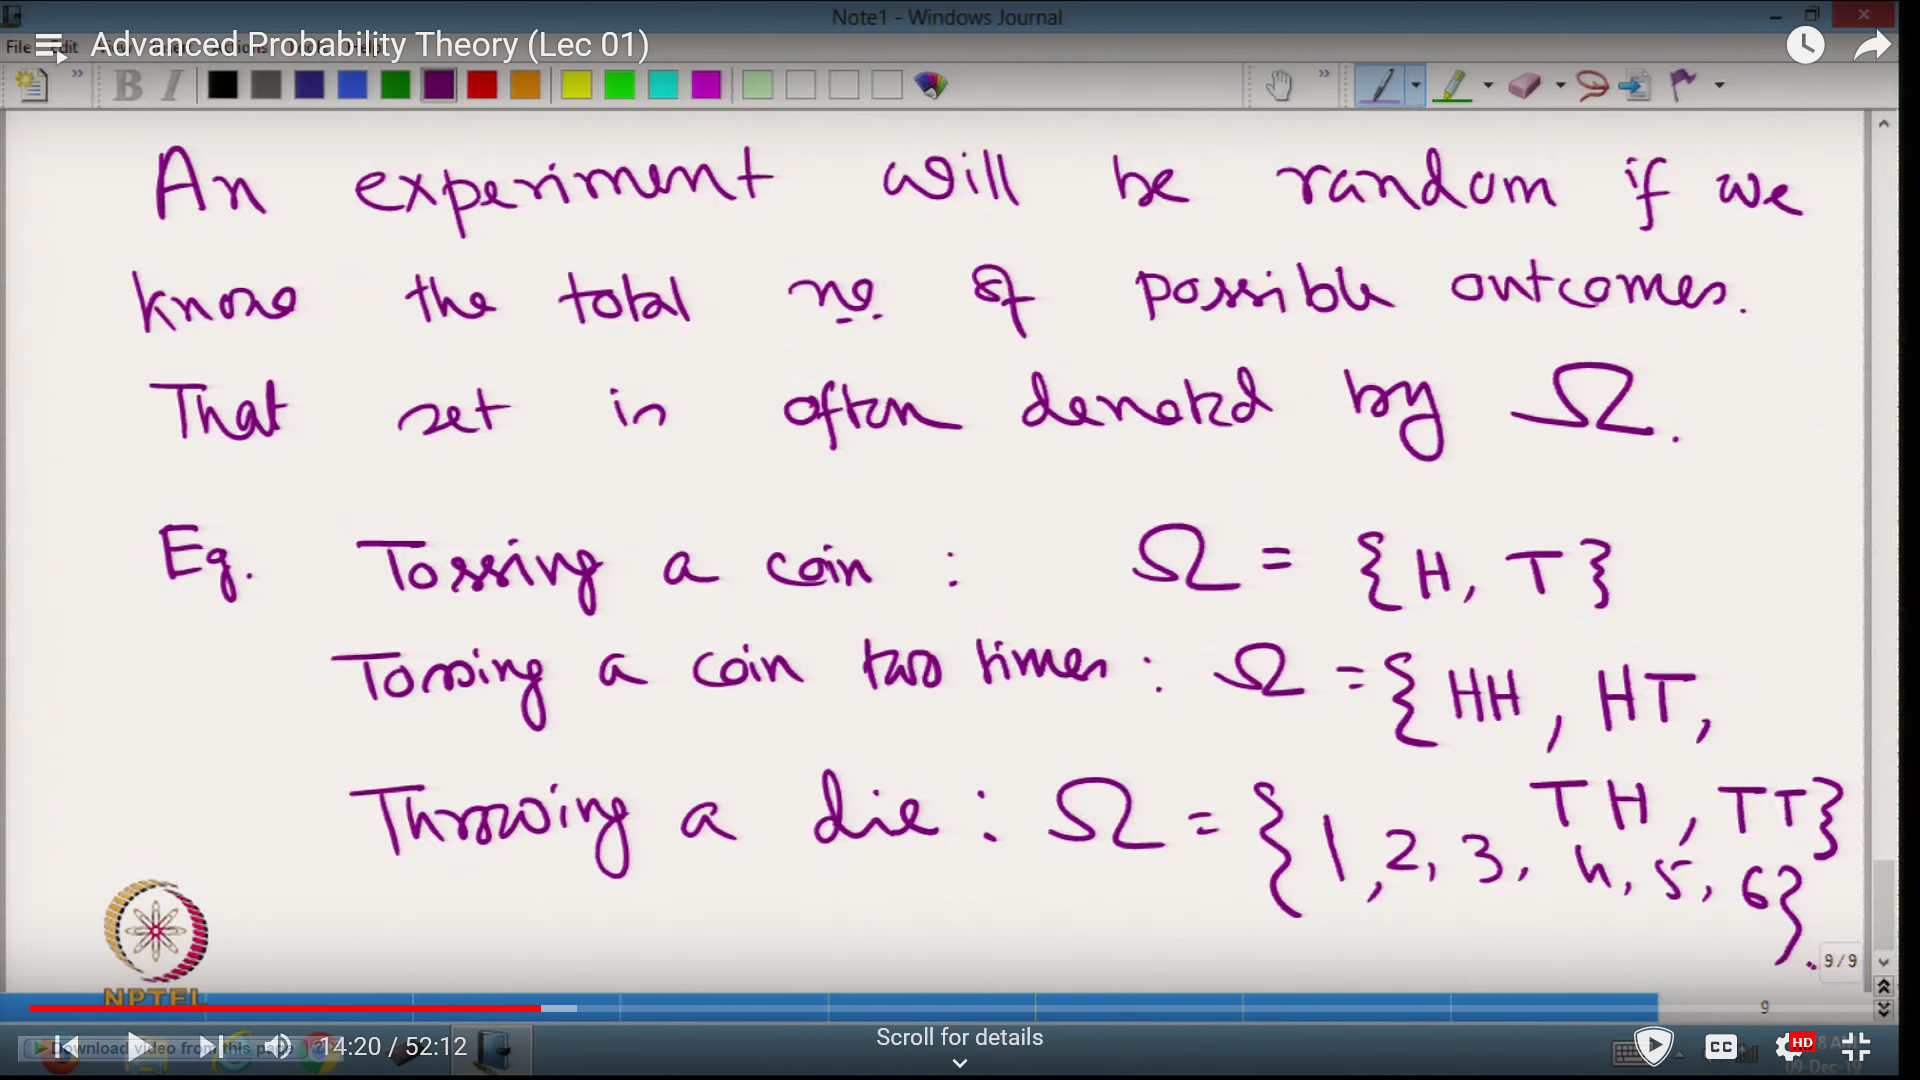 Note1 - Windows Journal
File Edit
Advanced Probability Theory (Lec 01)
An experiment will be random if we
know the total no. of possible outcomes.
That set is often denoted by Ω.
Eg. Tossing a coin : Ω = {H, T}
Tossing a coin two times : Ω = {HH, HT,
TH, TT}
Throwing a die : Ω = {1, 2, 3, 4, 5, 6}.
9/9
NPTEL
9
14:20 / 52:12
Scroll for details
Download video from this page
CC
HD
09-Dec-19